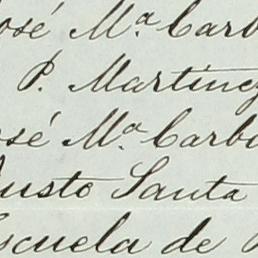 José Mª Carb
P. Martinez
José Mª Carbo
Justo Santa
Escuela de